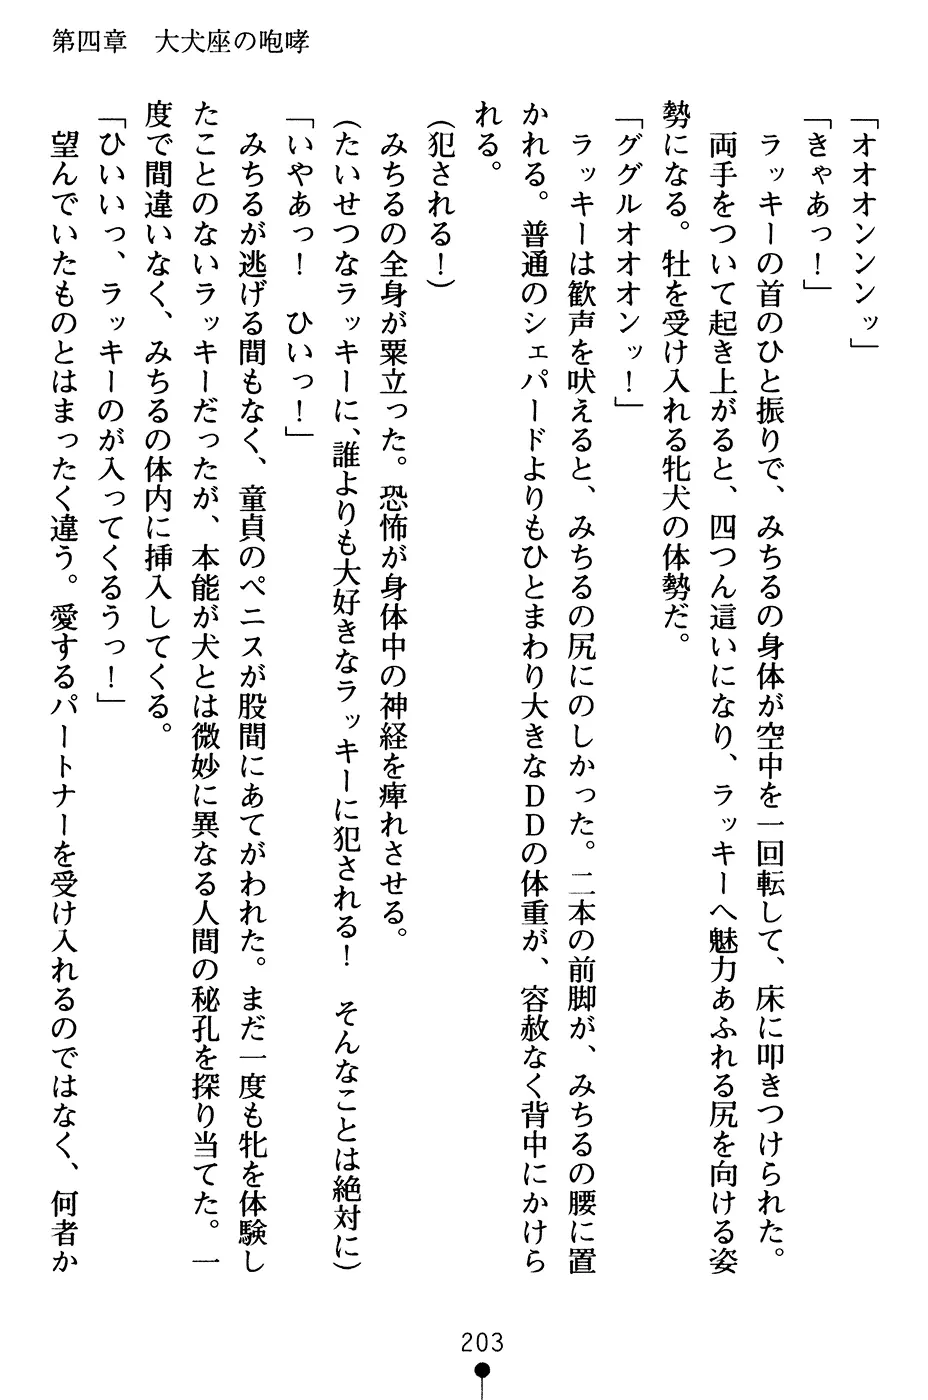 第四章　大犬座の咆哮
「オオオンンンッ」
「きゃあっ！」
　ラッキーの首のひと振りで、みちるの身体が空中を一回転して、床に叩きつけられた。
　両手をついて起き上がると、四つん這いになり、ラッキーへ魅力あふれる尻を向ける姿
勢になる。牡を受け入れる牝犬の体勢だ。
「ググルオオオンッ！」
　ラッキーは歓声を吠えると、みちるの尻にのしかった。二本の前脚が、みちるの腰に置
かれる。普通のシェパードよりもひとまわり大きなＤＤの体重が、容赦なく背中にかけら
れる。
（犯される！）
　みちるの全身が粟立った。恐怖が身体中の神経を痺れさせる。
（たいせつなラッキーに、誰よりも大好きなラッキーに犯される！　そんなことは絶対に）
「いやあっ！　ひいっ！」
　みちるが逃げる間もなく、童貞のペニスが股間にあてがわれた。まだ一度も牝を体験し
たことのないラッキーだったが、本能が犬とは微妙に異なる人間の秘孔を探り当てた。一
度で間違いなく、みちるの体内に挿入してくる。
「ひいいっ、ラッキーのが入ってくるうっ！」
　望んでいたものとはまったく違う。愛するパートナーを受け入れるのではなく、何者か
203